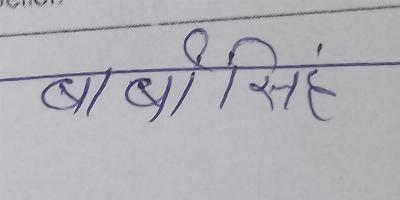 बाबी सिंह